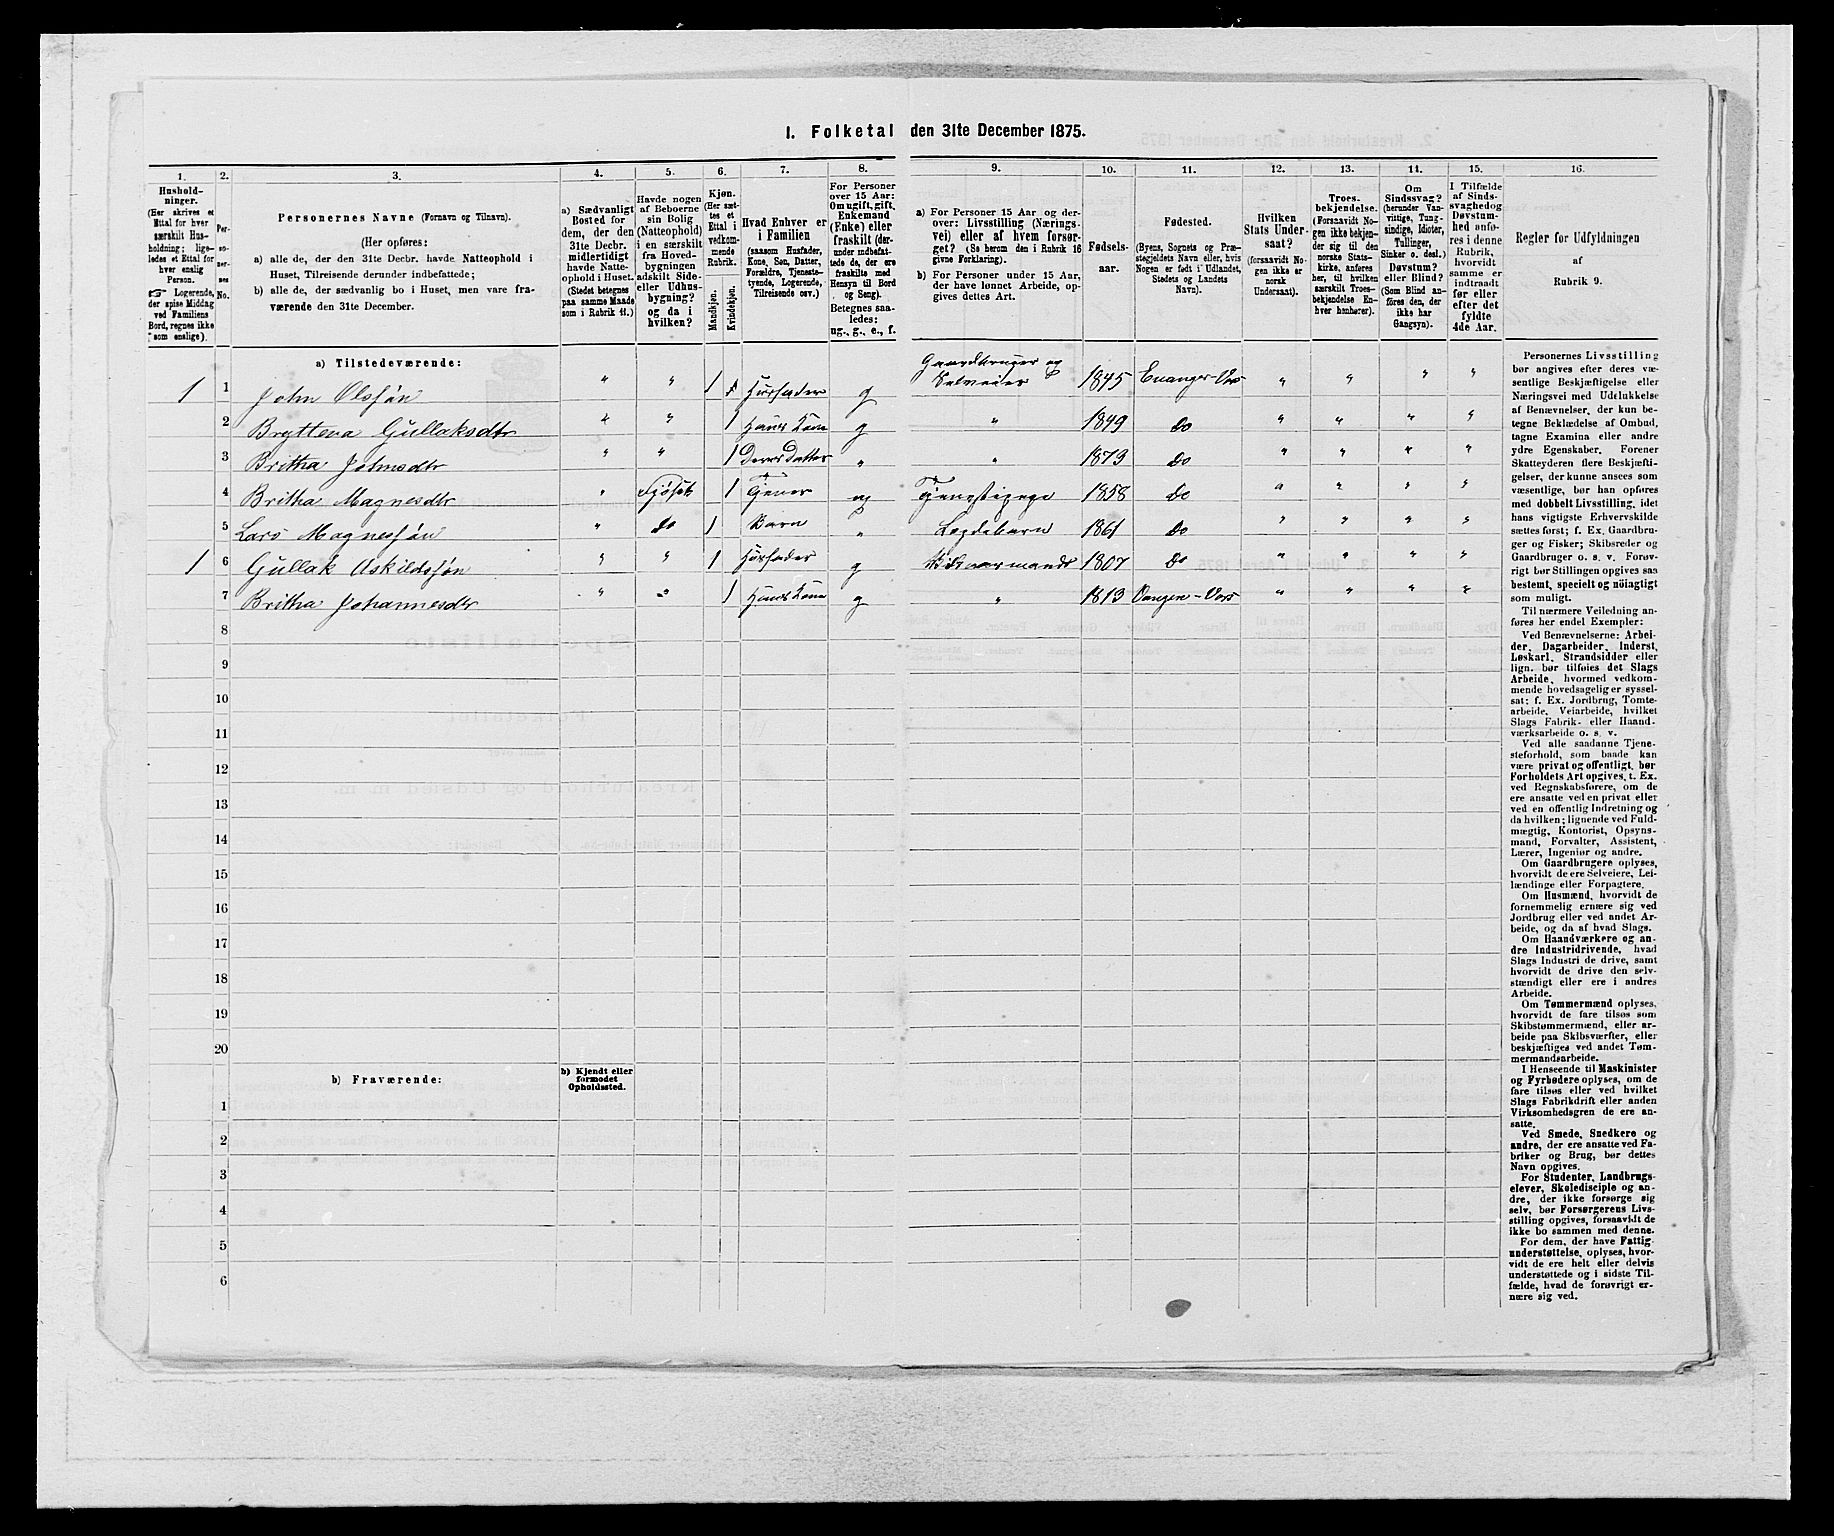 1. Folketal den 31te December 1875.
1. 2. 3. 4. 5. 6. 7. 8. 9. 10. 11. 12. 13. 14. 15. 16.
Hushold-
ninger.
(Her skrives et
Ettal for hver
særskilt Hus-
holdning; lige-
ledes et Ettal for
hver enslig
Person.
☞ Logerende,
der spise Middag
ved Familiens
Bord, regnes ikke
som enslige).
Per-
so-
ner-
nes
No.
Personernes Navne (Fornavn og Tilnavn).
(Her opføres:
a) alle de, der den 31te Decbr. havde Natteophold i
Huset, Tilreisende derunder indbefattede;
b) alle de, der sædvanlig bo i Huset, men vare fra-
værende den 31te December.
a) Sædvanligt
Bosted for
dem, der den
31te Decbr.
midlertidigt
havde Natte-
ophold i Huset.
(Stedet betegnes
paa samme Maade
som i Rubrik 11.)
Havde nogen
af Beboerne
sin Bolig
(Natteophold)
i en særskilt
fra Hoved-
bygningen
adskilt Side-
eller Udhus-
bygning?
og da i
hvilken?
Kjøn.
(Her sæt-
tes et
Ettal i
vedkom-
mende
Rubrik.
Mandkjøn.
Kvindekjøn.
Hvad Enhver er
i Familien
(saasom Husfader,
Kone, Søn, Datter,
Forældre, Tjeneste-
tyende, Logerende,
Tilreisende osv.)
For Personer
over 15 Aar:
Om ugift, gift,
Enkemand
(Enke) eller
fraskilt (der-
under indbefat-
tede de, der ere
fraskilte med
Hensyn til Bord
og Seng).
Betegnes saa-
ledes:
ug., g., e., f.
a) For Personer 15 Aar og der-
over: Livsstilling (Nærings-
vei) eller af hvem forsør-
get? (Se herom den i Rubrik 16
givne Forklaring).
b) For Personer under 15 Aar,
der have lønnet Arbeide, op-
gives dettes Art.
Fødsels-
aar.
Fødested.
(Byens, Sognets og Præ-
stegjeldets Navn eller, hvis
Nogen er født i Udlandet,
Stedets og Landets
Navn).
Hvilken
Stats Under-
saat?
(forsaavidt No-
gen ikke er
norsk
Undersaat).
Troes-
bekjendelse.
(Forsaavidt No-
gen ikke bekjen-
der sig til den
norske Stats-
kirke, anføres
her, til hvilken
særskilt Troes-
bekjendelse En-
hver henhører).
Om
Sindssvag?
(herunder Van-
vittige, Tung-
sindige, Idioter,
Tullinger,
Sinker o. desl.)
Døvstum?
eller Blind?
(Som Blind an-
føres den, der
ikke har
Gangsyn).
I Tilfælde
af Sinds-
svaghed og
Døvstum-
hed anfø-
res i denne
Rubrik,
hvorvidt
samme er
indtraadt
før eller
efter det
fyldte
4de Aar.
Regler for Udfyldningen
af
Rubrik 9.
a) Tilstedeværende:
1 1 John Olssøn " " 1 Husfader g Gaardbruger og Selveier 1845 Evanger Vos " " " "
2 Brytteva Gullaksdtr " " 1 Hans Kone g " 1849 Do " " " "
3 Britha Johnsdtr " " 1 Deres Datter " " 1873 Do " " " "
4 Britha Magnesdtr " Fjøset 1 Tjener ug Tjenestepige 1858 Do " " " "
5 Lars Magnessøn " do 1 Barn " Legdebarn 1861 Do " " " "
1 6 Gullak Askildssøn " " 1 Husfader g 1807 Do " " " "
7 Britha Johannesdtr " " 1 Hans Kone g " 1813 Vangen - Vos " " " "
8
9
10
11
12
13
14
15
16
17
18
19
20
b) Fraværende:
b) Kjendt eller
formodet
Opholdssted.
1
2
3
4
5
6
Personernes Livsstilling
bør angives efter deres væ-
sentlige Beskjæftigelse eller
Næringsvei med Udelukkelse
af Benævnelser, der kun be-
tegne Beklædelse af Ombud,
tagne Examina eller andre
ydre Egenskaber. Forener
Skatteyderen flere Beskjæfti-
gelser, der kunne ansees som
væsentlige, bør han opføres
med dobbelt Livsstilling, idet
hans vigtigste Erhvervskilde
sættes først; f. Ex. Gaardbru-
ger og Fisker; Skibsreder og
Gaardbruger o. s. v. Forøv-
rigt bør Stillingen opgives saa
bestemt, specielt og nøiagtigt
som muligt.
Til nærmere Veiledning an-
føres her endel Exempler:
Ved Benævnelserne: Arbei-
der, Dagarbeider, Inderst,
Løskarl, Strandsidder eller
lign. bør tilføies det Slags
Arbeide, hvormed vedkom-
mende hovedsagelig er syssel-
sat; f. Ex. Jordbrug, Tomte-
arbeide, Veiarbeide, hvilket
Slags Fabrik- eller Haand-
værksarbeide o. s. v.
Ved alle saadanne Tjene-
steforhold, som baade kan
være privat og offentligt, bør
Forholdets Art opgives, t. Ex.
ved Regnskabsførere, om de
ere ansatte ved en privat eller
ved en offentlig Indretning og
da hvilken; lignende ved Fuld-
mægtig, Kontorist, Opsyns-
mand, Forvalter, Assistent,
Lærer, Ingeniør og andre.
Om Gaardbrugere oplyses,
hvorvidt de ere Selveiere, Lei-
lændinge eller Forpagtere.
Om Husmænd, hvorvidt de
fornemmelig ernære sig ved
Jordbrug eller ved andet Ar-
beide, og da af hvad Slags.
Om Haandværkere og an-
dre Industridrivende, hvad
Slags Industri de drive, samt
hvorvidt de drive den selv-
stændigt eller ere i andres
Arbeide.
Om Tømmermænd oplyses,
hvorvidt de fare tilsøs som
Skibstømmermænd, eller ar-
beide paa Skibsværfter, eller
beskjæftiges ved andet Tøm-
mermandsarbeide.
I Henseende til Maskinister
og Fyrbødere oplyses, om de
fare tilsøs eller ved hvilket
Slags Fabrikdrift eller anden
Virksomhedsgren de ere an-
satte.
Ved Smede, Snedkere og
andre, der ere ansatte ved Fa-
briker og Brug, bør dettes
Navn opgives.
For Studenter, Landbrugs-
elever, Skoledisciple og an-
dre, der ikke forsørge sig
selv, bør Forsørgerens Livs-
stilling opgives, forsaavidt de
ikke bo sammen med denne.
For dem, der have Fattig-
understøttelse, oplyses, hvor-
vidt de ere helt eller delvis
understøttede og i sidste Til-
fælde, hvad de forøvrigt er-
nære sig ved.